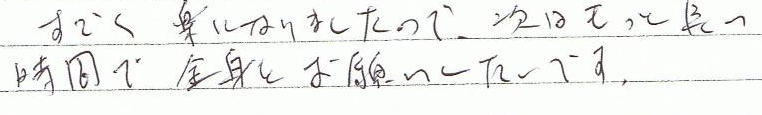 すごく楽になりましたので、次はもっと長い
時間で全身をお願いしたいです。